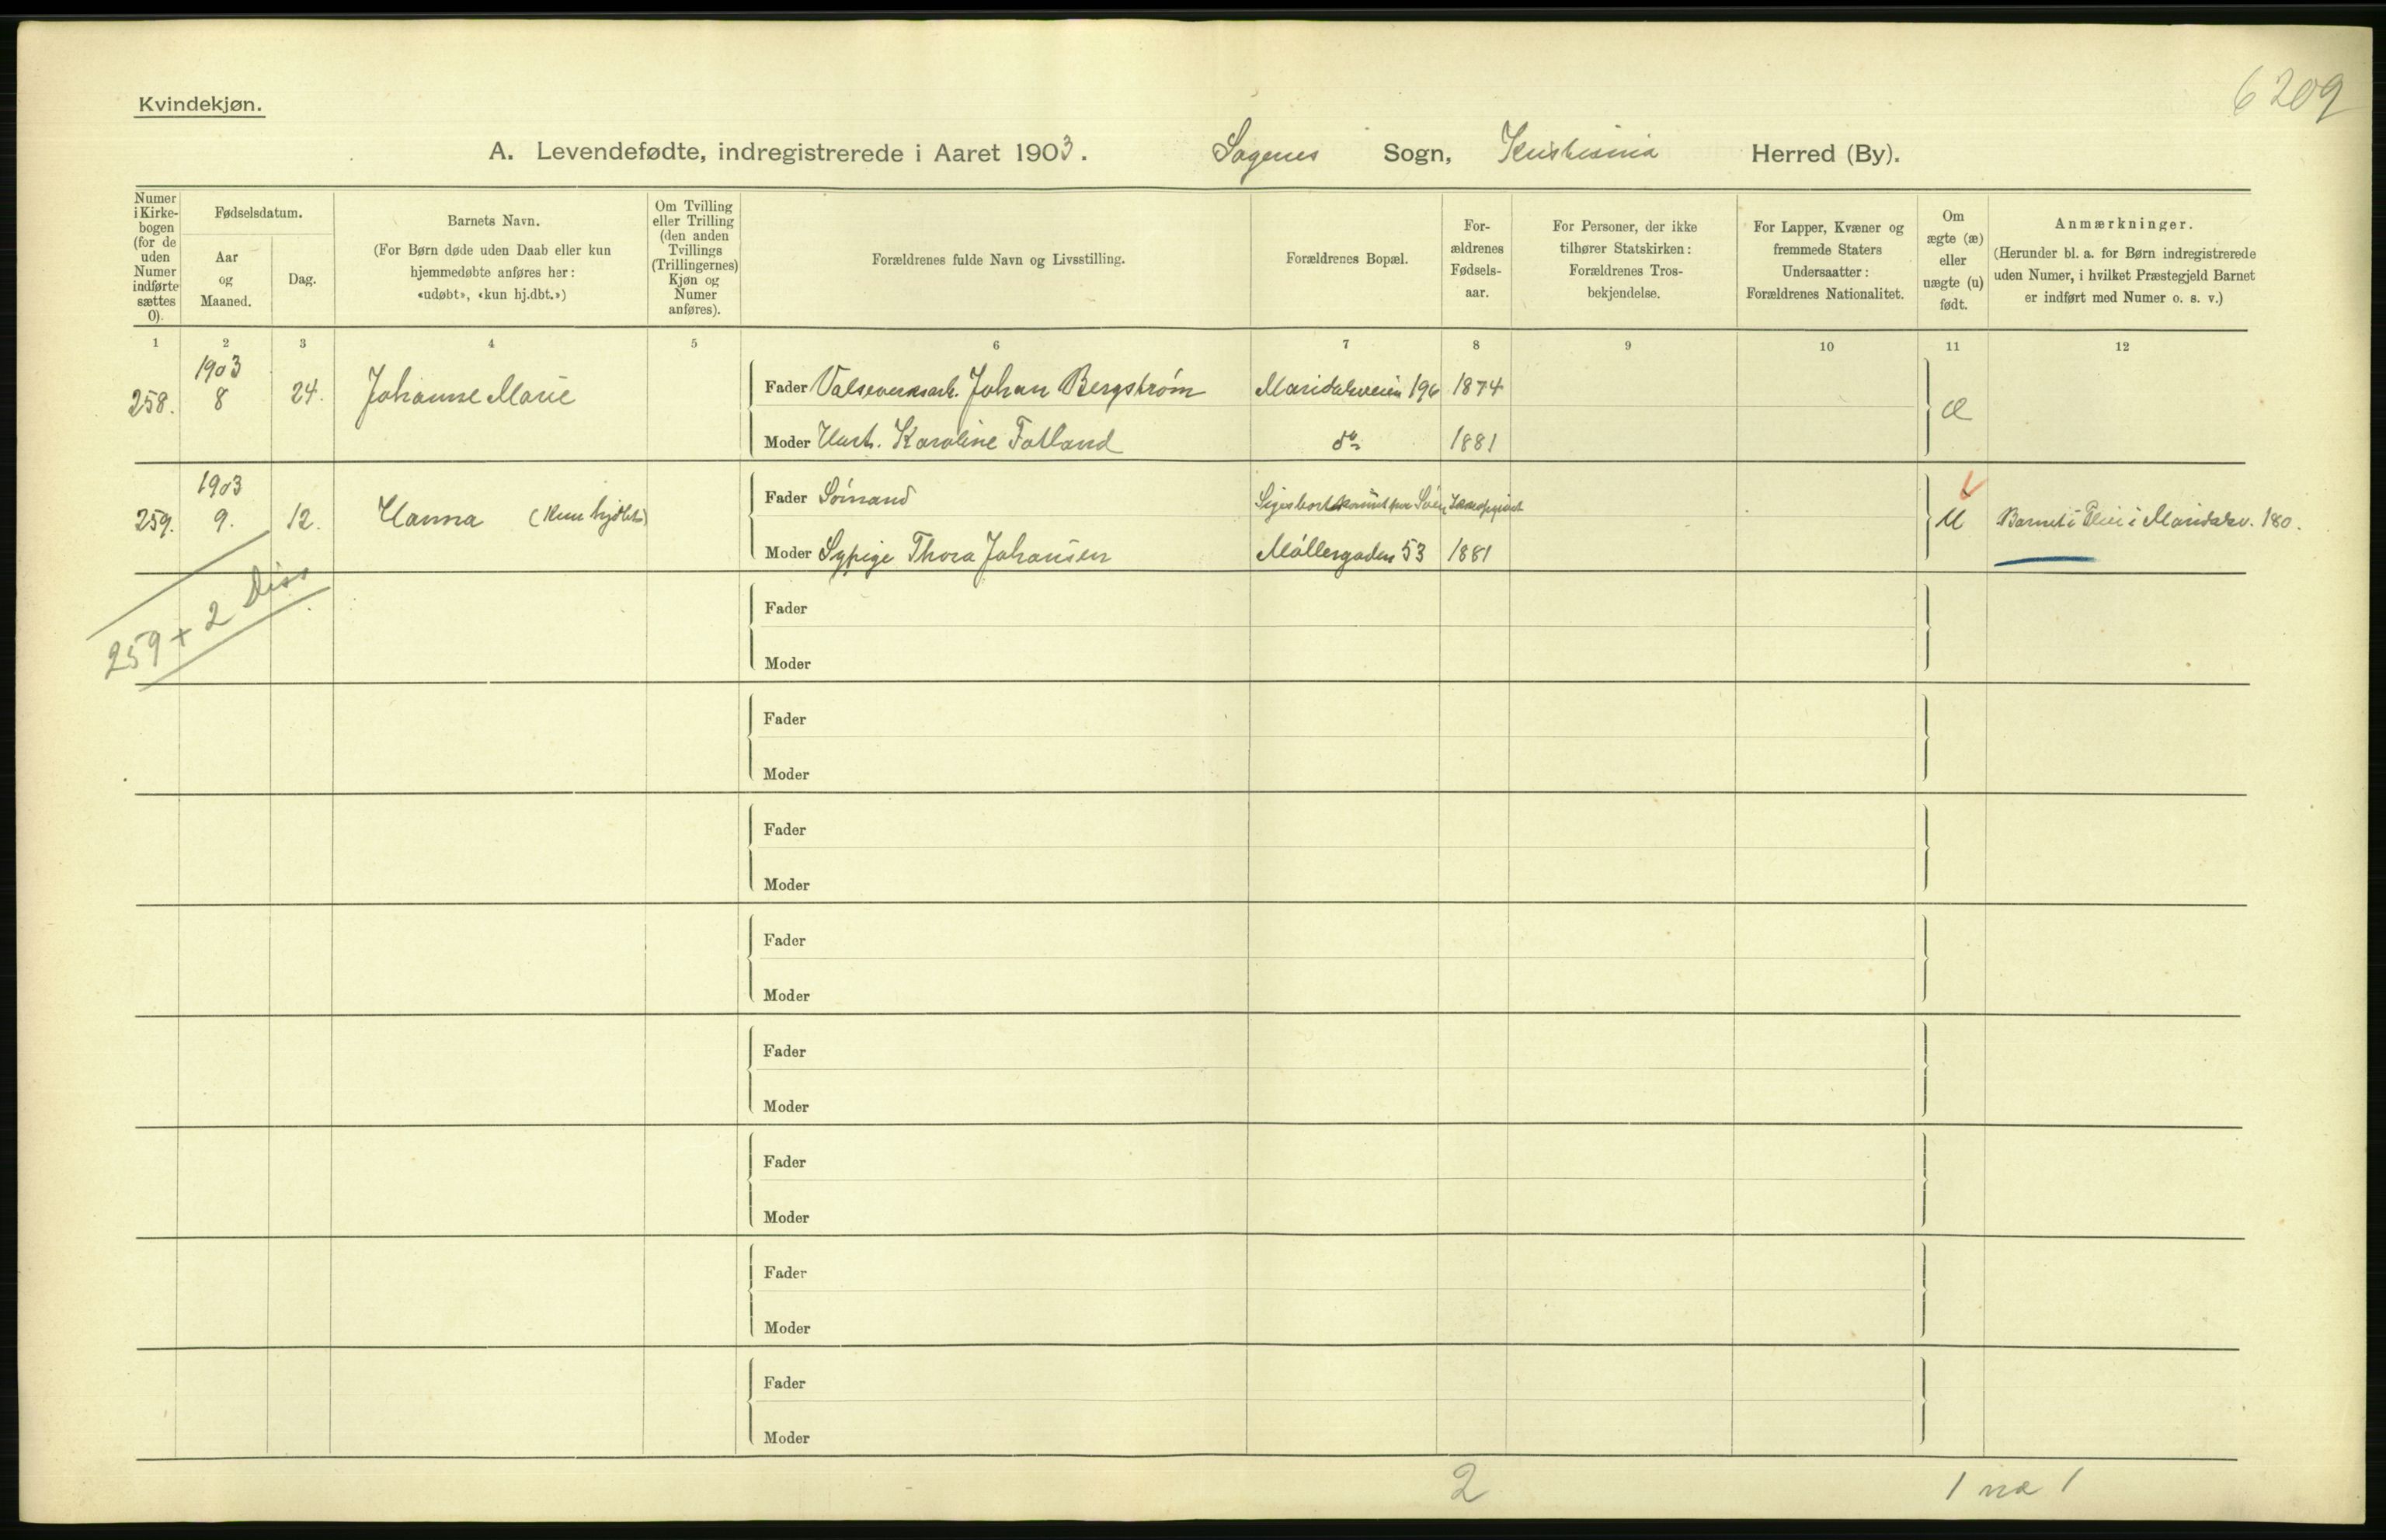 6209
Kvindekjøn.
A. Levendefødte, indregistrerede i Aaret 1903. Sagenes Sogn, Kristiania Herred (By).
Numer i Kirke-bogen (for de uden Numer indførte sættes 0).
Fødselsdatum.
Aar og Maaned.
Dag.
Barnets Navn.
(For Børn døde uden Daab eller kun
hjemmedøbte anføres her:
«udøbt», «kun hj.dbt.»)
Om Tvilling
eller Trilling
(den anden
Tvillings
(Trillingernes)
Kjøn og
Numer
anføres).
Forældrenes fulde Navn og Livsstilling.
Forældrenes Bopæl.
For-
ældrenes
Fødsels-
aar.
For Personer, der ikke
tilhører Statskirken:
Forældrenes Tros-
bekjendelse.
For Lapper, Kvæner og
fremmede Staters
Undersaatter:
Forældrenes Nationalitet.
Om
ægte (æ)
eller
uægte (u)
født.
Anmærkninger.
(Herunder bl. a. for Børn indregistrerede
uden Numer, i hvilket Præstegjeld Barnet
er indført med Numer o. s. v.)
1 2 3 4 5 6 7 8 9 10 11 12
1903
258. 8 24. Johanne Marie Fader Valseverksarb. Johan Bergstrøm Maridalsveien 196 1874 æ
Moder Hust. Karoline Fatland do 1881
1903
259. 9. 12. Hanna (kun hjdbt) Fader Sømand Siges bortkommet paa
Moder Sypige Thora Johansen Møllergaden 53 1881 u Barnet i Pleie i Maridalsv. 180.
259 + 2 Diss
Fader
Moder
Fader
Moder
Fader
Moder
Fader
Moder
Fader
Moder
Fader
Moder
Fader
Moder
Fader
Moder
2 1 1